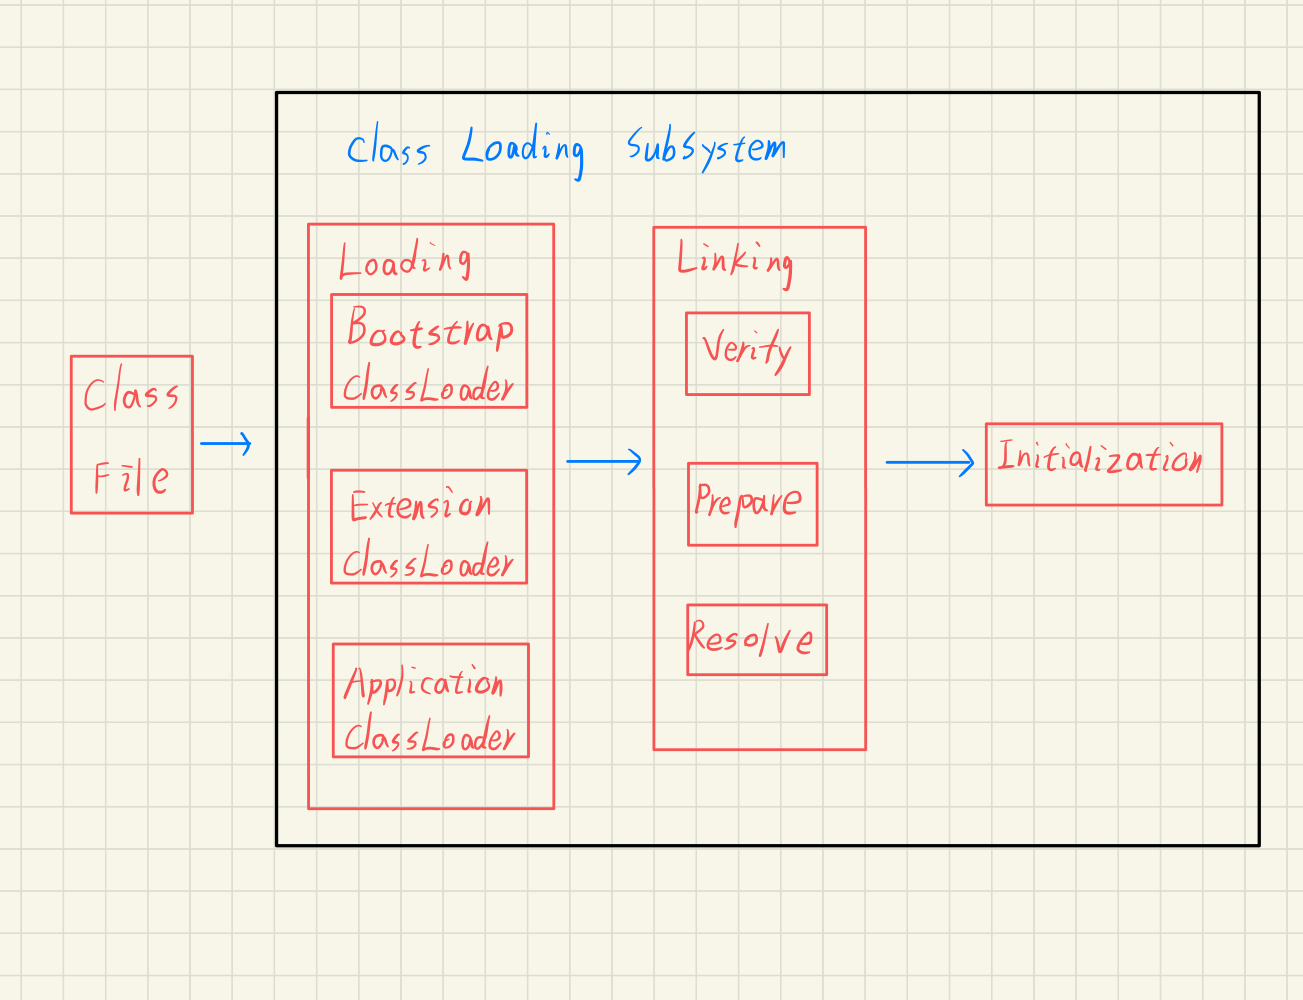 Class Loading Subsystem
Class
File
Loading
Bootstrap
ClassLoader
Extension
ClassLoader
Application
ClassLoader
Linking
Verity
Prepare
Resolve
Initialization